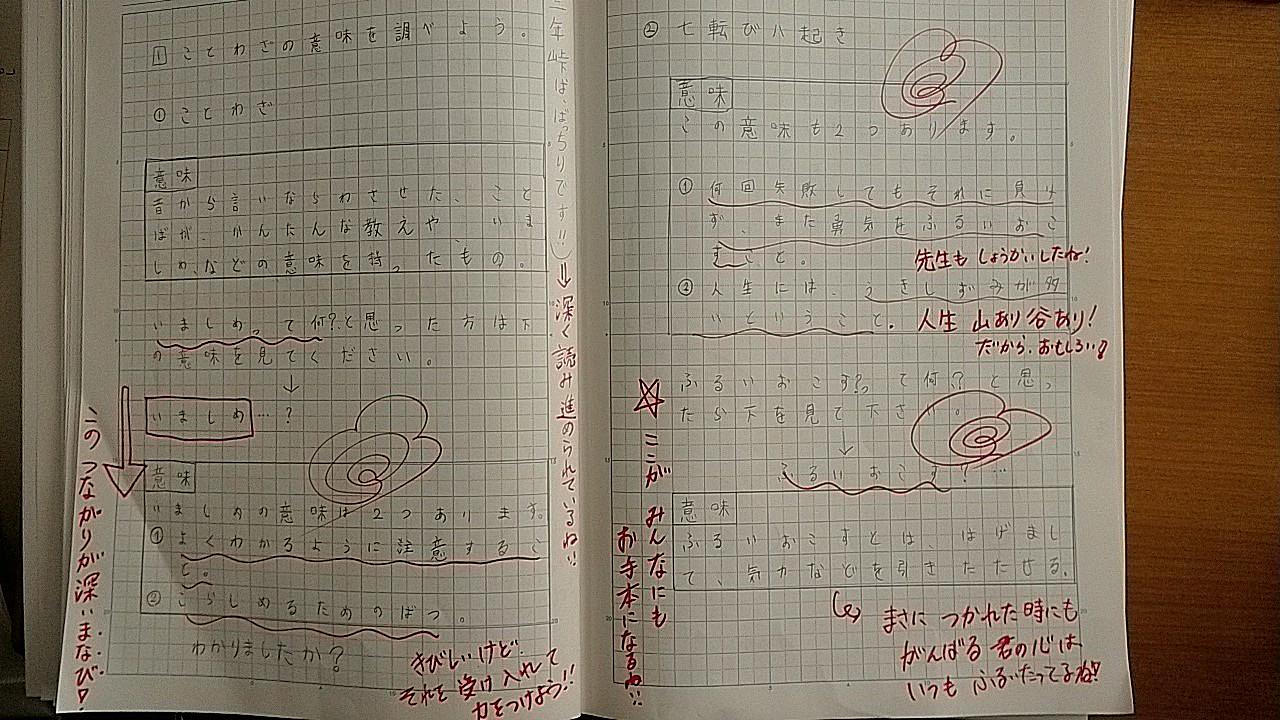 1 ことわざの意味を調べよう。
① ことわざ
意味
昔から言いならわさせた、こと
ばが、かんたんな教えや、いま
しめ、などの意味を持ったもの。
いましめって何?と思った方は下
の意味を見てください。
↓
いましめ…?
意味
いましめの意味は2つあります。
① よくわかるように注意するこ
と。
② こらしめるためのばつ。
わかりましたか?
きびしいけど
それを受け入れて
力をつけよう!!
このつながりが深いまなび!
年峠は、ばっちりです!!)⇒深く読み進められているね!!
② 七転び八起き
意味
この意味も2つあります。
① 何回失敗してもそれに負け
ず、また勇気をふるいおこ
すこと。
先生もしょうかいしたね!
② 人生には、うきしずみが多
いということ。
人生山あり谷あり!
だから、おもしろい!
ふるいおこす?って何?と思っ
たら下を見て下さい。
↓
ふるいおこす?…
意味
ふるいおこすとは、はげまし
て、気力などを引きたたせる。
☆ここがみんなにも
お手本になるね!!
まさにつかれた時にも
がんばる君の心は
いつもふるいたってるね!